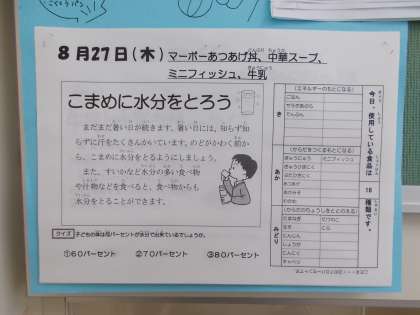 8月27日(木) マーボーあつあげ丼、中華スープ、
ミニフィッシュ、牛乳
こまめに水分をとろう
まだまだ暑い日が続きます。暑い日には、知らず知
らずに汗をたくさんかいています。のどがかわく前か
ら、こまめに水分をとるようにしましょう。
また、すいかなど水分の多い食べ物
や汁物などを食べると、食べ物からも
水分をとることができます。
クイズ 子どもの体は何パーセントが水分で出来ているでしょうか。
①60パーセント ②70パーセント ③80パーセント
今日、使用している食品は
18
種類です。
き
(エネルギーのもとになる)
ごはん
でんぷん
あか
(からだをつくるもとになる)
ぎゅうにゅう ミニフィッシュ
あつあげ
みどり
(からだのちょうしをととのえる)
たまねぎ たけのこ
にら
にんじん
しょうが
にんにく
キャベツ